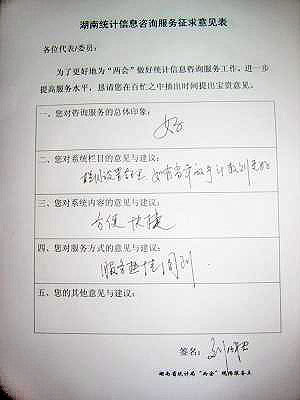 湖南统计信息咨询服务征求意见表
各位代表/委员：
为了更好地为“两会”做好统计信息咨询服务工作，进一步
提高服务水平，恳请您在百忙之中抽出时间提出宝贵意见。
一、您对咨询服务的总体印象：
好
二、您对系统栏目的意见与建议：
栏目设置
三、您对系统内容的意见与建议：
方便 快捷
四、您对服务方式的意见与建议：
服务热情周到
五、您的其他意见与建议：
签名：
湖南省统计局“两会”现场服务点